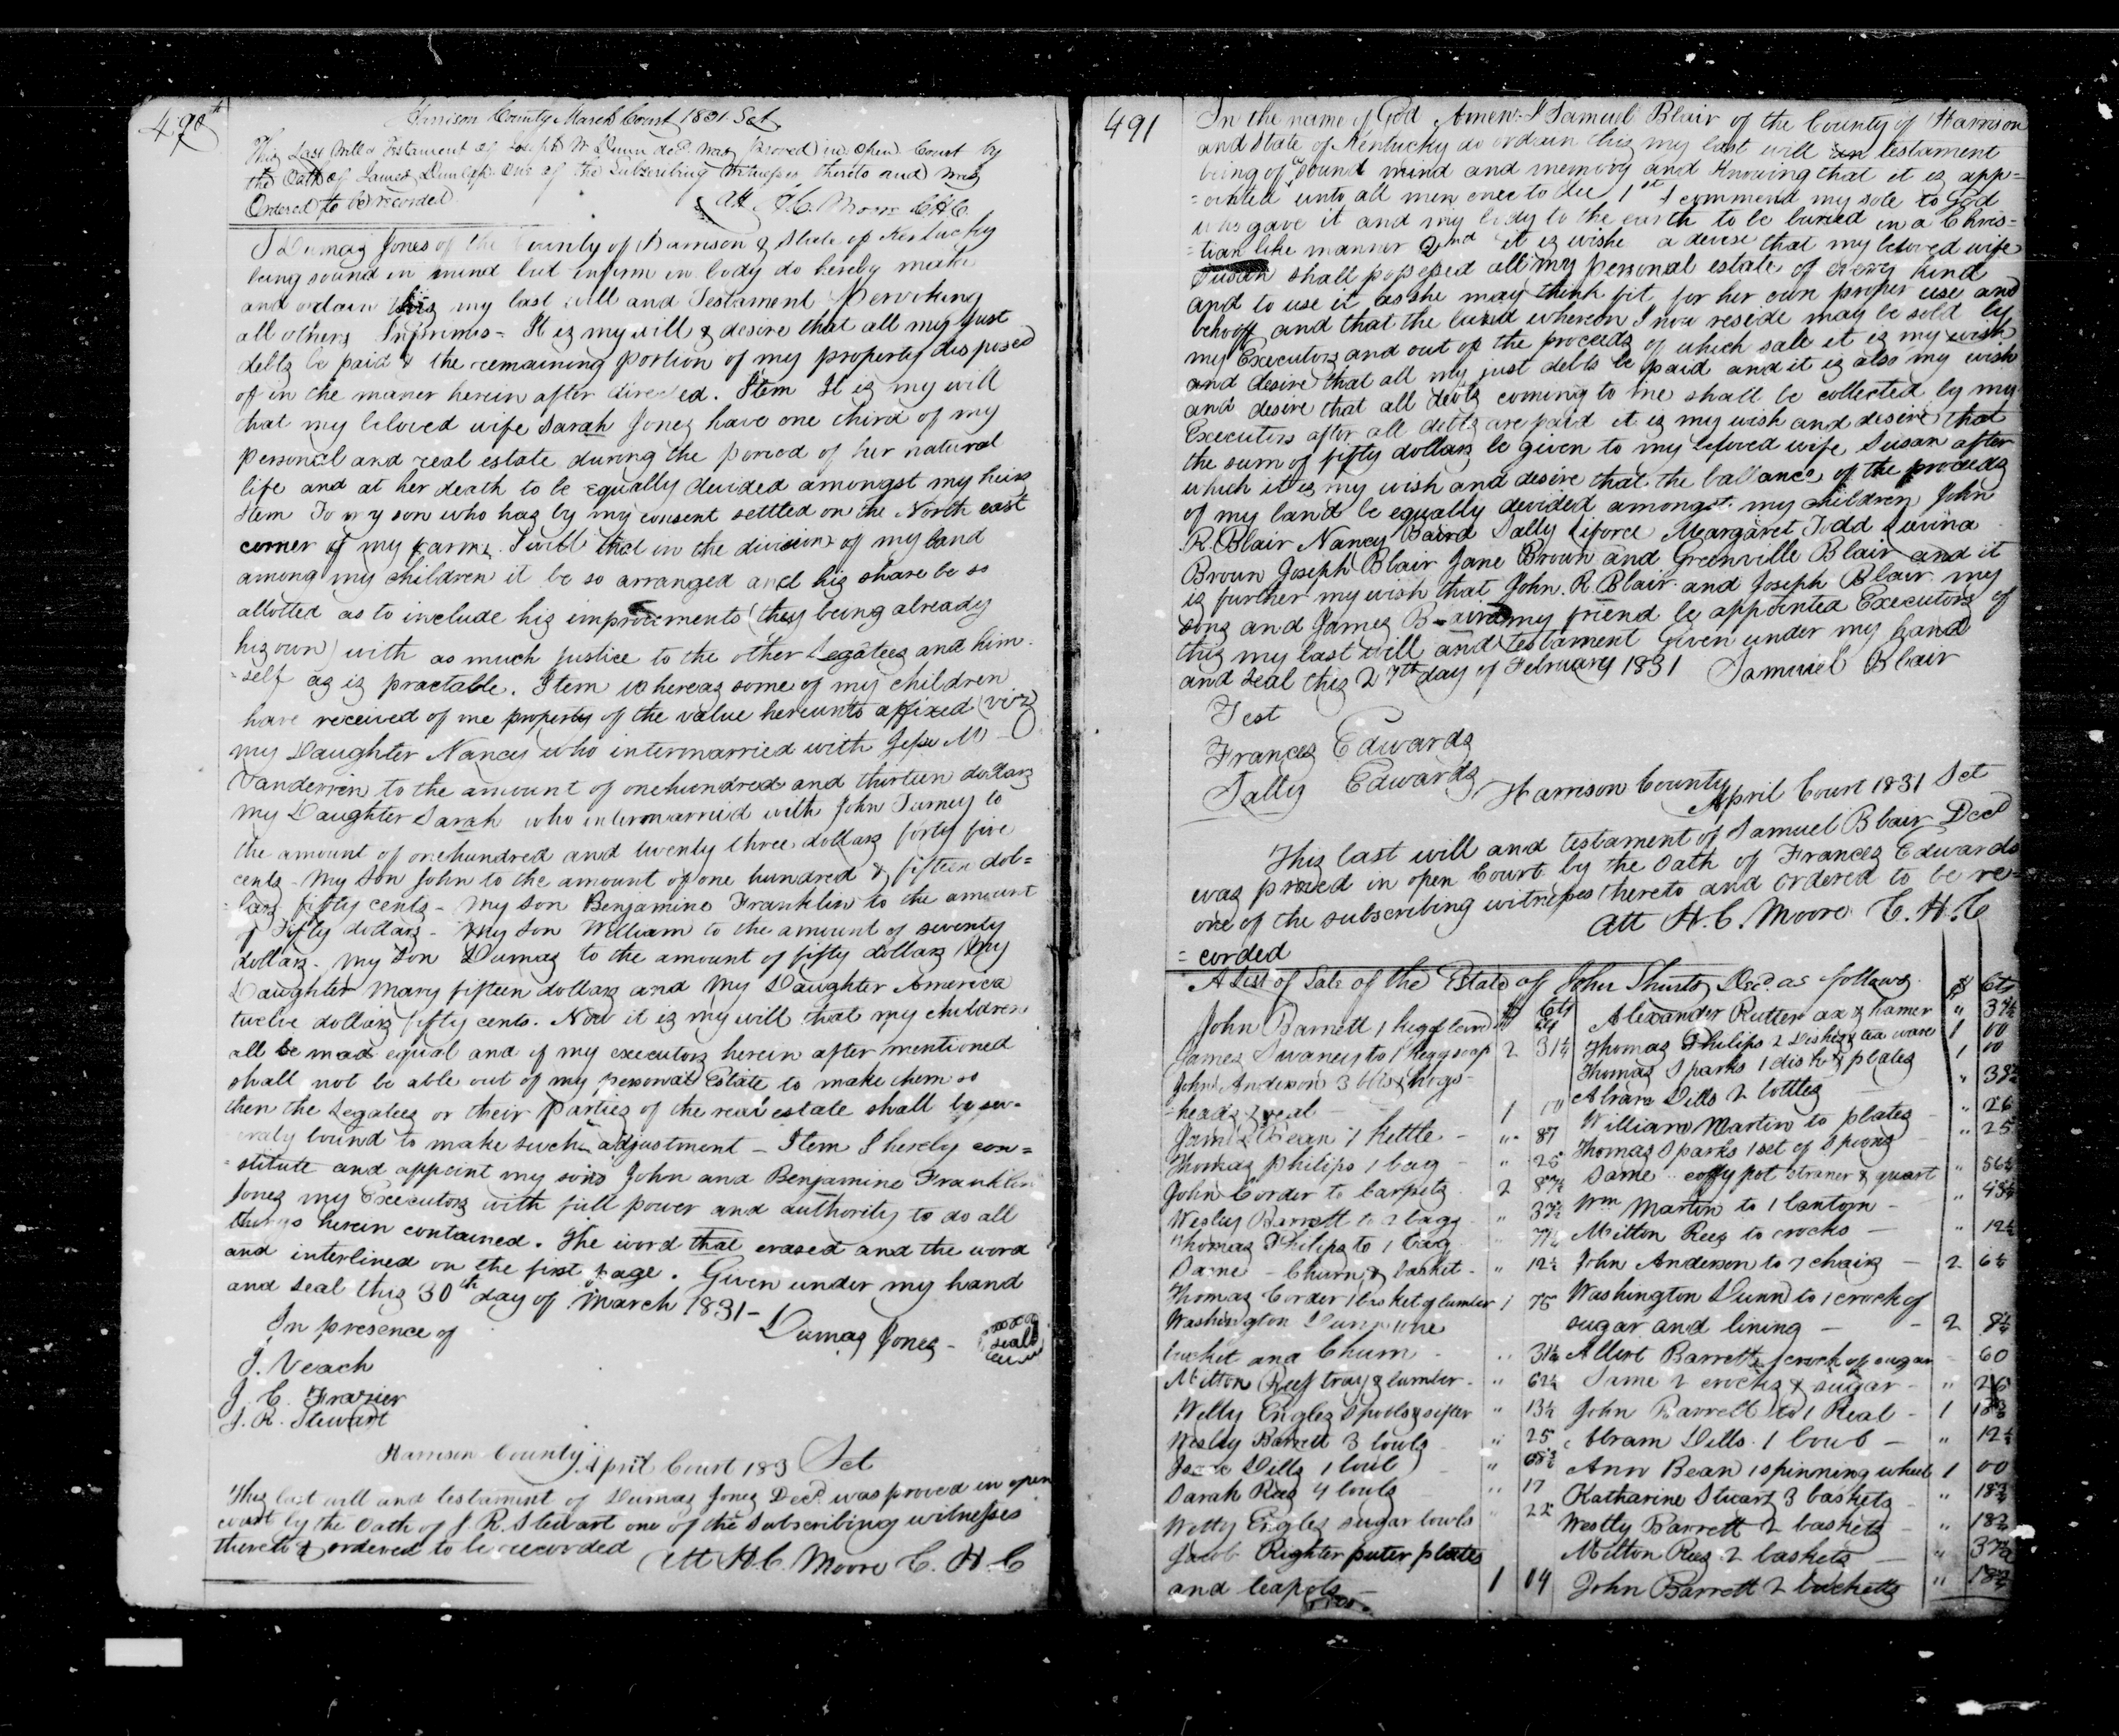 490th
Harrison County March Court 1831 Sct
This Last Will & Testament of Joseph W Dunn decd. was proved in open Court by
the Oath of James Dunlap one of the Subscribing witnesses thereto and was
Ordered to be recorded
Att H.C. Moore C.H.C.
I Dumas Jones of the County of Harrison & State of Kentucky
being sound in mind but infirm in body do hereby make
and ordain this my last will and Testament
all others Inprimos - It is my will & desire that all my just
debts be paid & the remaining portion of my property disposed
of in the maner herein after directed. Item It is my will
that my beloved wife Sarah Jones have one third of my
personal and real estate during the period of her natural
life and at her death to be equally devided amongst my heirs
Item To my son who has by my consent settled on the North east
corner of my farm. I will that in the division of my land
among my children it be so arranged and his share be so
allotted as to include his improvements (they being already
his own) with as much justice to the other Legatees and him-
-self as is practable. Item whereas some of my children
have received of me property of the value hereunto affixed (viz)
my Daughter Nancy who intermarried with Jesse M
Vanderren to the amount of onehundred and thirteen dollars
my Daughter Sarah who intermarried with John Turney to
the amount of onehundred and twenty three dollars forty five
cents - My Son John to the amount of one hundred & fifteen dol=
=lars fifty cents - my son Benjamine Franklin to the amount
of Fifty dollars - my son William to the amount of seventy
dollars - my Son Dumas to the amount of fifty dollars My
Daughter Mary fifteen dollars and My Daughter America
twelve dollars fifty cents. Now it is my will that my children
all be mad equal and if my executors herein after mentioned
shall not be able out of my personal Estate to make them so
then the Legatees or their parties of the real estate shall be sev-
eraly bound to make such adjustment - Item I hereby con=
=stitute and appoint my sons John and Benjamine Franklin
Jones my Executors with full power and authority to do all
things herein contained. The word that erased and the word
and interlined on the first page. Given under my hand
and seal this 30th day of March 1831 -
Dumas Jones - seal
In presence of
J. Veach
J. C. Frazier
J. R. Stewart
Harrison County April Court 183 Sct
This last will and testament of Dumas Jones Decd. was proved in open
court by the Oath of J. R. Stewart one of the Subscribing witnesses
thereto & ordered to be recorded
Att H.C. Moore C. H. C
491
In the name of God Amen. I Samuel Blair of the County of Harrison
and State of Kentucky do ordain this my last will testament
being of sound mind and memory and Knowing that it is app=
=ointed unto all men once to die 1st I commend my sole to God
who gave it and my body to the earth to be buried in a Chris-
=tian like manner 2nd it is wishe a devise that my beloved wife
Susan shall possessed all my personal estate of every kind
and to use it as she may think fit for her own proper use and
behooff and that the land whereon I now reside may be sold by
my Executors and out of the proceeds of which sale it is my wish
and desire that all my just debts be paid and it is also my wish
and desire that all debts coming to me shall be collected by my
Executors after all debts are paid it is my wish and desire that
the sum of fifty dollars be given to my beloved wife Susan after
which it is my wish and desire that the ballance of the proceeds
of my land be equally devided amongst my children John
R. Blair Nancy Baird Sally Liforce Meargaret Todd Lavina
Broun Joseph Blair Jane Brown and Greenville Blair and it
is further my wish that John. R. Blair and Joseph Blair my
sons and James my friend be appointed Executors of
this my last will and testament Given under my hand
and seal this 27th day of February 1831 Samuel Blair
Test
Frances Edwards
Sally Edwards
Harrison County April Court 1831 Sct
This last will and testament of Samuel Blair Decd
was proved in open Court by the Oath of Frances Edwards
one of the subscribing witnesses thereto and ordered to be re=
=corded
Att H.C. Moore C.H.C
A List of Sale of the Estate of John Shurts Decd. as follows
$ Cts
John Barrett 1 keg of
James Swaney to 1 kegg soap 2 31¼
John Anderson 3 & hogs-
=heads & 1
James Bean 1 Kettle - " 87
Thomas Philips 1 bag - " 25
John Corder to Carpets 2 87½
Wesley Barrett to 2 bags " 37½
Thomas Philips to 1 bag
Same - Churn & basket - " 12½
Thomas Corder 1 basket of lumber 1 75
Washington Dunn one
bucket and Churn " 31¼
Milton Rees tray & lumber - " 62½
Welly Engles spools & sifter " 13¼
Wesley Barrett 3 bowls " 25
Isaac Dills 1 bowl "
Sarah Rees 4 bowls " 17
Welly Engles sugar bowls " 22
Jacob Righter puter plates
and teapots - 1 04
$ Cts
Alexander Rutter ax & hamer " 37½
Thomas Philips 2 Dishes & tea ware 1 00
Thomas Sparks 1 dish & plates 1 00
Abram Dills 2 bottles - "
William Martin to plates - " 26
Thomas Sparks 1 set of Spoons - " 25
Same coffy pot straner & quart " 56¼
Wm Martin to 1 lantorn - "
Milton Rees to crocks - " 12½
John Anderson to 7 chairs - 2
Washington Dunn to 1 crock of
sugar and lining - 2
Albert Barrett 1 crock of sugar 60
Same 2 crocks & sugar - " 26
John Barrett to 1 Real - 1 18¾
Abram Dills 1 bowl - " 12½
Ann Bean 1 spinning wheel 1 00
Katharine Stuart 3 baskets " 18¾
Westly Barrett 2 baskets " 18¾
Milton Rees 2 baskets " 37½
John Barrett 2 bucketts " 18¾